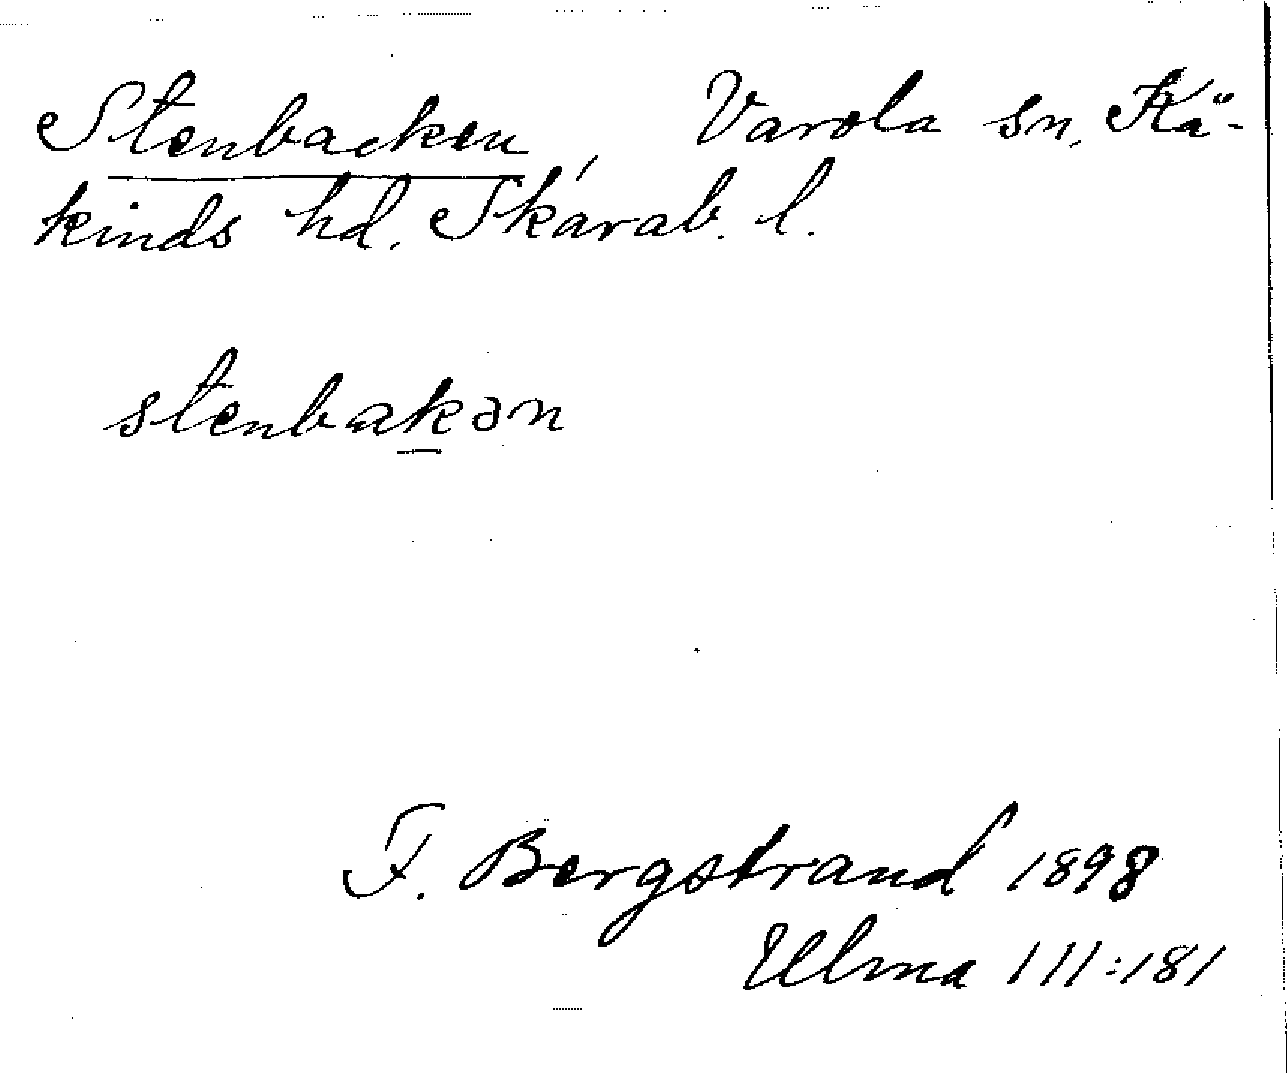 Stenbacken, Varola sn, Kä-
kinds hd. Skarab. l.
stenbakən
F. Bergstrand 1898
Ulma 111:181